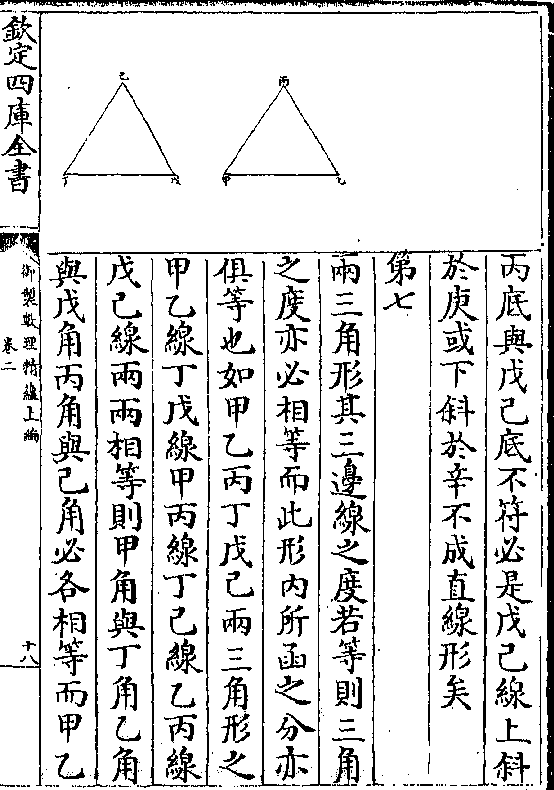 丙底與戊己底不符必是戊己線上斜
於庚或下斜於辛不成直線形矣
第七
兩三角形其三邊線之度若等則三角
之度亦必相等而此形内所函之分亦
俱等也如甲乙丙丁戊己兩三角形之
甲乙線丁戊線甲丙線丁己線乙丙線
戊己線兩兩相等則甲角與丁角乙角
與戊角丙角與己角必各相等而甲乙
丙
甲
乙
己
丁
戊
欽定四庫全書
御製數理精蘊上編
卷二
十八